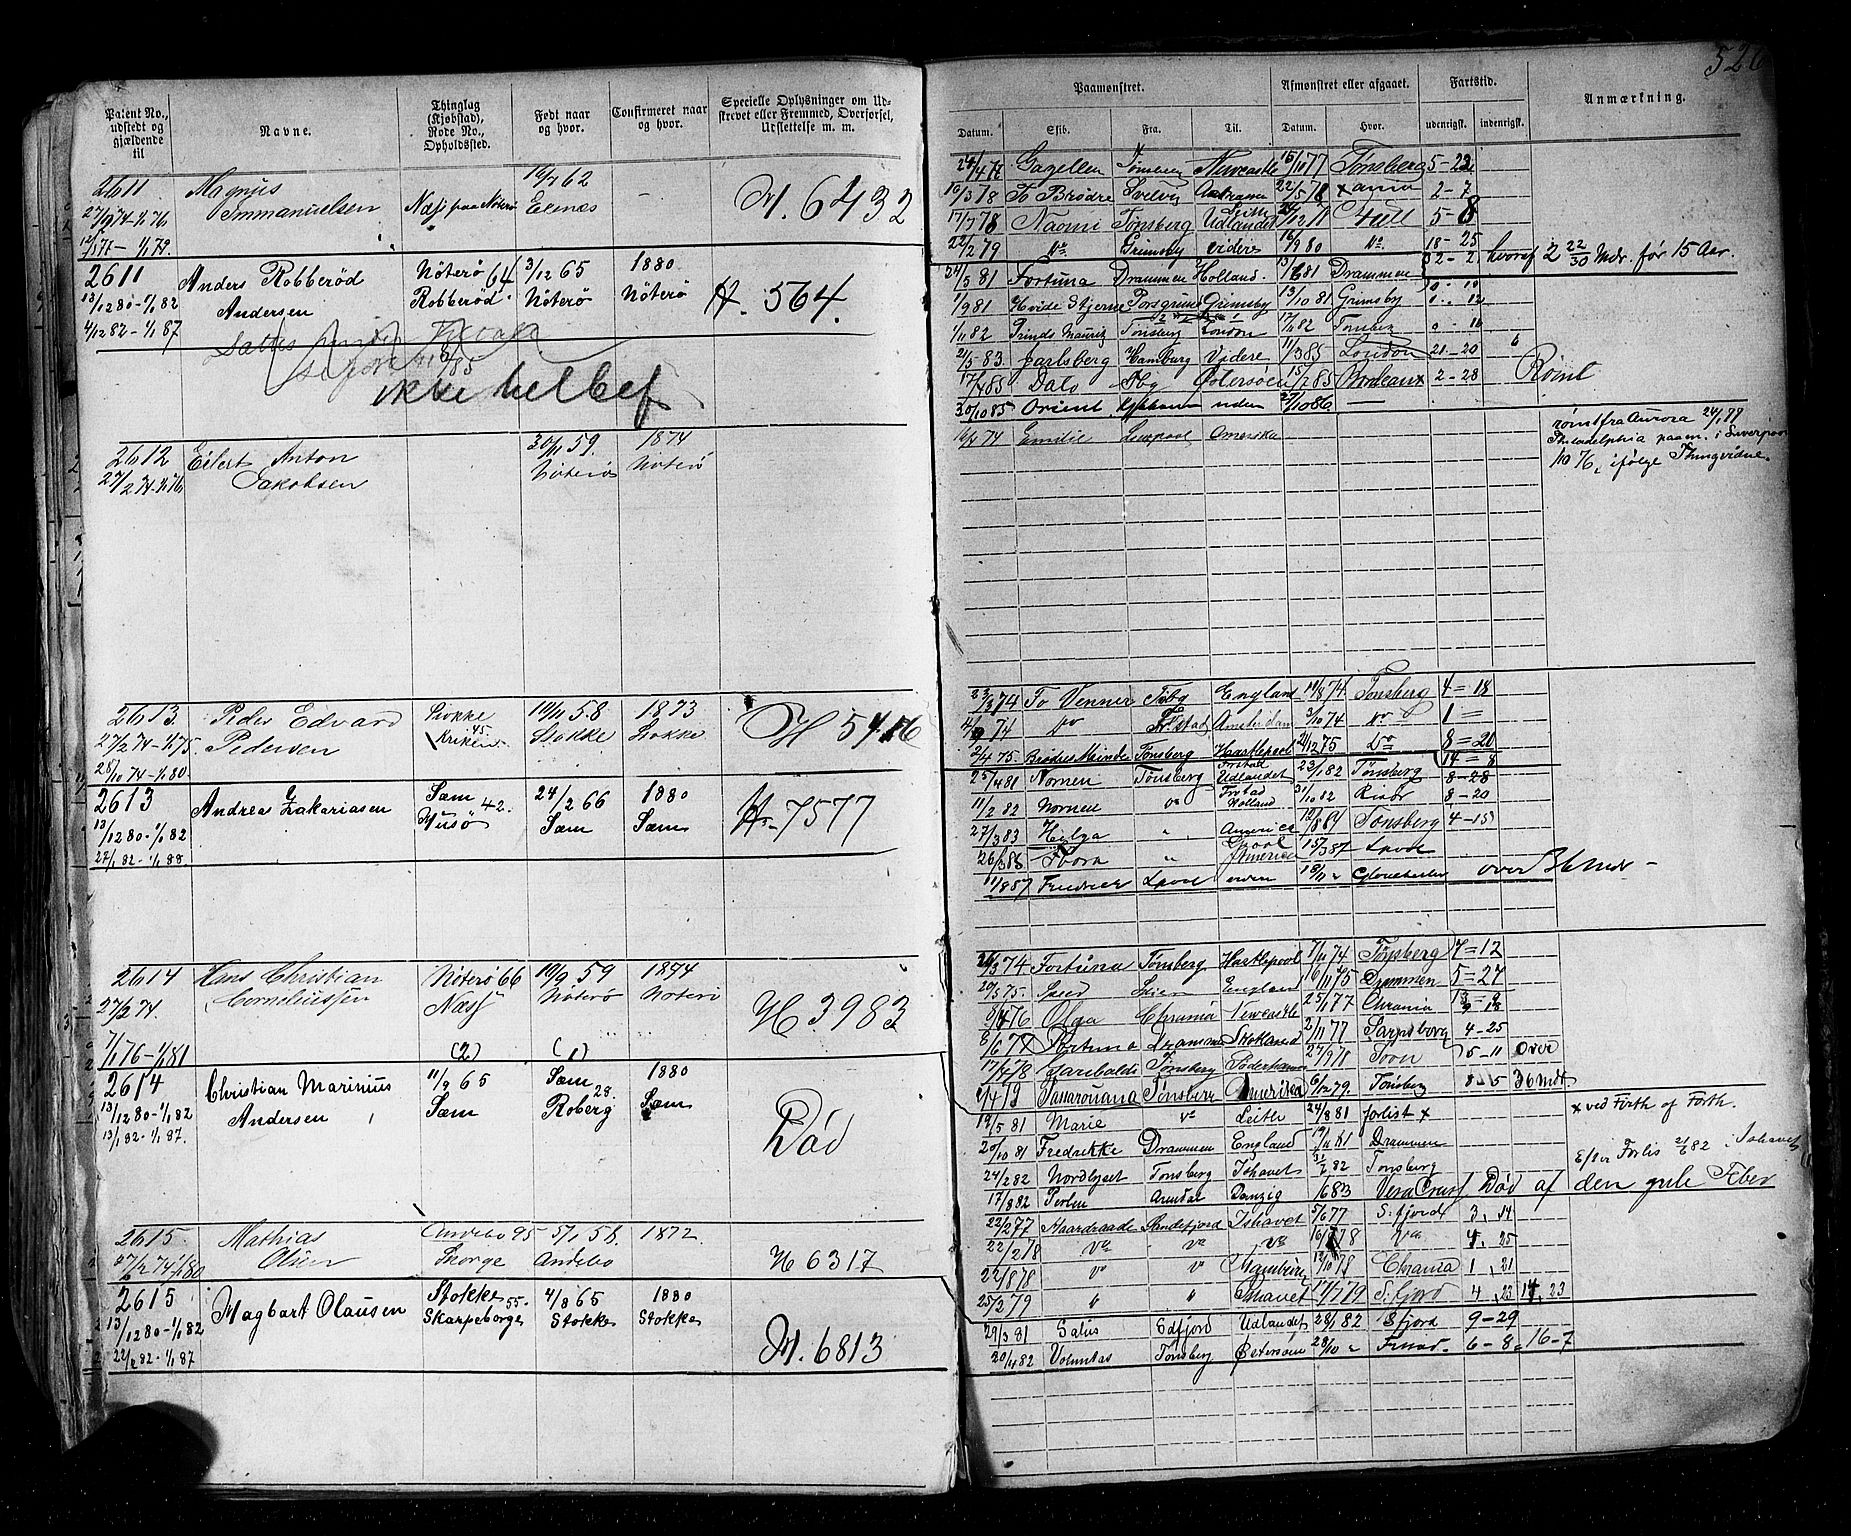 526
Patent No., udstedt og gjældende til
Navne.
Thinglag (Kjøbstad), Rode No., Opholdssted.
Født naar og hvor.
Confirmeret naar og hvor.
Specielle Oplysninger om Udstrevet eller Fremmed, Overførsel, Udslettelse m. m.
Paamønstret.
Afmønstret eller afgaaet.
Fartstid.
Anmærkning.
Datum. Skib. Fra. Til. Datum. Hvor. udenrigst. indenrigst.
2611 Magnus Immanuelsen Næs paa Nøterø 62 Ekenæs - H. 6432
27/9 74-1/1 76
1/1 79.
2611 Anders Robberød Andersen Nøterø 64 Robberød 3/12 65 Nøterø 1880 Nøterø H. 564.
13/12 80-1/1 82
4/12 82-1/1 87
ikke helbef
2612 Eilert Anton Jakobsen 30/11 59. Nøterø 1874 Nøterø
27/2 74-1/1 76
2613 Peder Edvard Pedersen Stokke 45 10/11 58 Stokke 1873 Stokke H 5476
27/2 74-1/1 75.
28/10 74-1/1 80
2613 Andreas Zakariasen Sæm 42. Husø 24/2 66 Sæm 1880 Sæm H. 7577
13/12 80-1/1 82
27/1 82-1/1 88.
2614 Hans Christian Corneliussen Nøterø 66 Næss 10/9 59 Nøterø 1874 Nøterø H 3983
27/2 74.
7/1 76-1/1 81 (2) (1)
2614 Christian Marinius Andersen 11/9 65 Sæm Sæm 28. Roberg 1880 Sæm Død
13/12 80-1/1 82
13/1 82-1/1 87.
2615. Mathias Olsen Andebo 95 5/1 58. Andebo 1872. H 6317
27/2 74-1/1 80
2615 Hagbart Olausen Stokke 55. Skarpeborge 4/8 65 Stokke 1880 Stokke H. 6813
13/12 80-1/1 82
22/2 82-1/1 87
24/4 77 Gazellen Tønsberg Newcastle 15/10 77 Tønsberg 5-22
10/3 78 To Brødre Svelvig 22/5 78 2-7
17/7 78 Naomi Tønsberg Leith Udlandet Hull 5-8
22/2 79 Do Grimsby videre 16/9 80 Do 18-25
32-2 hvoraf 2 22/30 Mdr. før 15 Aar.
24/5 81 Fortuna Drammen Holland. 81 Drammen
1/9 81 Hvide Stjerne Porsgrund Grimsby 13/10 81 Grimsby
1/11 82 Prinds Mauritz Tønsberg London 82 Tønsberg
2/5 83 Jarlsberg Hamburg Videre 11/3 85 London 21-20
17/4 85 Dato Tbg Østersøen 15/7 85 Bordeaux 2-28 Rømt
30/10 85 Orient Kjøbhavn uden 27/10 86 —
74 Emilie Liverpool Amerika
rømt fra Aurora 24/1 79
Philadelphia paam. i Liverpool
1/10 76, ifølge Thingvidne.
23/3 74 To Venner Tsbg England 19/8 74 Tønsberg 4=18
74 Do Frstad Amsterdam 3/10 74 Do 1=
2/4 75. Brødres Minde Tønsberg Hartlepool 21/12 75 Do 8=20
14=8
25/4 81 Nornen Tønsberg Frstad Udlandet 23/1 82 Tønsberg 8-28
11/2 82 Nornen Do Frstad Holland 31/10 82 Risør 8-20
27/3 83 Helga " Amerika 19/8 84 Tønsberg 4-15
26/3 86 Thora " Amerika 15/7 87 Lpool
11/8 87 Lpool uden over 36 Mdr -
26/3 74 Fortuna Tønsberg Hartlepool 7/11 74 Tønsberg 7=12
20/5 75. Speed Skien England 6/11 75 Drammen 5=27
8/4 76 Olga Chrania Newcastle 25/1 77 Chrania
8/6 77 Fortuna Drammen Skotland 2/11 77 Sarpsborg 4-25
17/4 78 Garibaldi Tønsberg Søderhamn 27/9 78 5-11 over
2/4 79 Tønsberg Amerika 6/12 79. Tønsberg 8-5 36 Mdr.
19/5 81 Marie Do Leith 24/8 81 forlist x x ved Firth of Forth.
20/10 81 Fredrikke Drammen England 81 Drammen
24/2 82 Nordlyset Tønsberg Ishavet 82 Tønsberg Efter Forlis 82 i Ishavet
17/8 82 Perlen Arendal Danzig 1683 Vera Cruz Død af den gule Feber
22/2 77 Haardraade Sandefjord Ishavet 5/6 77 S. fjord 3, 14
22/2 78 Do Do Do 78 Do 4. 25
22/8 78 Do Do Hamburg 78 Chrania 1, 21
25/2 79 " " Ishavet 17/7 79 S. fjord 4, 23 14, 23
29/3 81 Salus Sdfjord Udlandet 28/1 82 Sfjord 9-29
20/4 82 Voluntas Tønsberg Østersøen 28/10 " Frstad. 6-8. 16-7